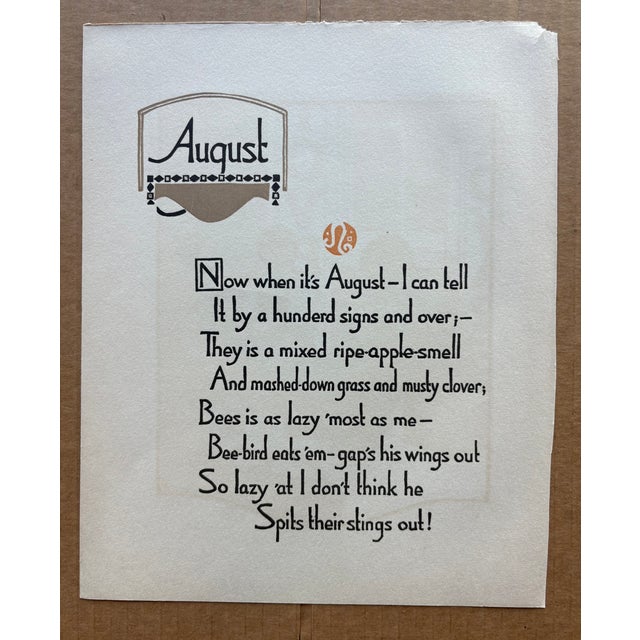 August
Now when it's August–I can tell
It by a hunderd signs and over;–
They is a mixed ripe-apple-smell
And mashed-down grass and musty clover;
Bees is as lazy 'most as me–
Bee-bird eats 'em–gap's his wings out
So lazy 'at I don't think he
Spits their stings out!